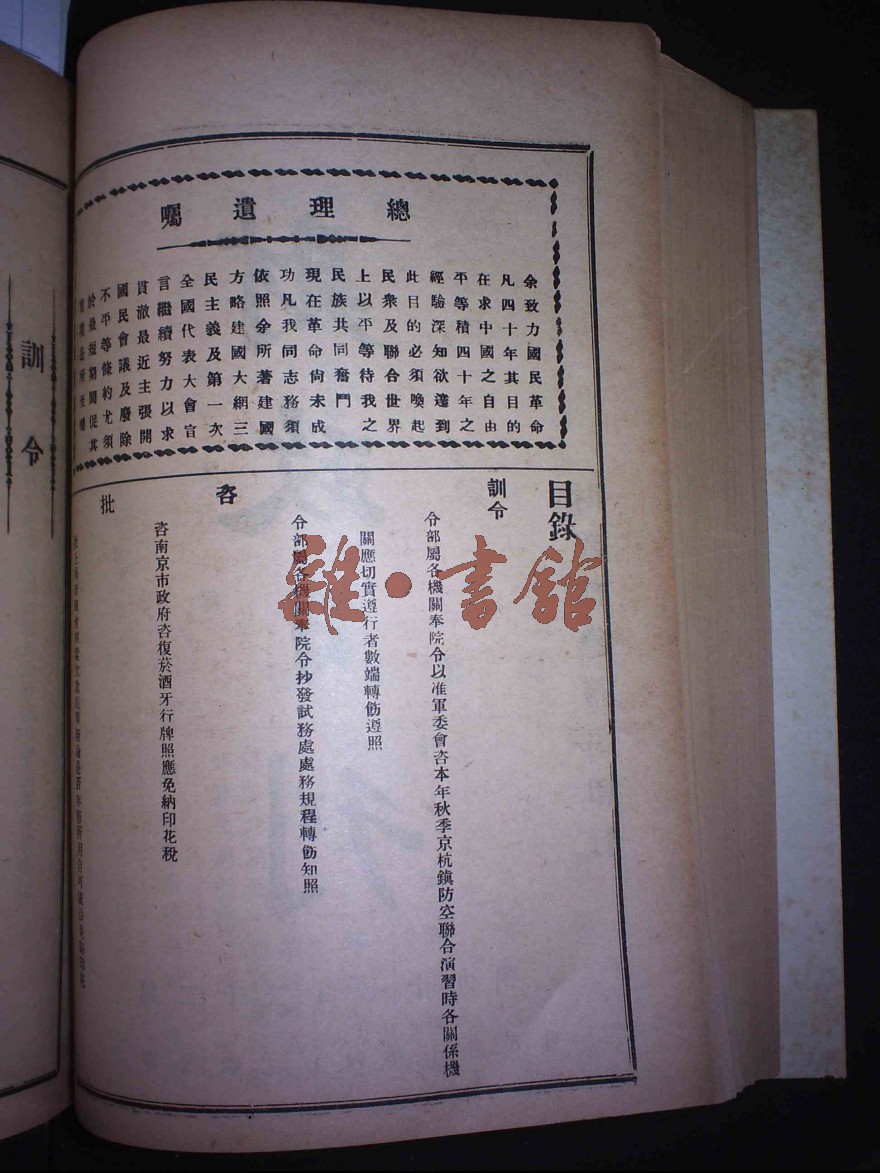 總理遺囑
余致力國民革命
凡四十年其目的
在求中國之自由
平等積四十年之
經驗深知欲達到
此目的必須喚起
民衆及聯合世界
上以平等待我之
民族共同奮鬥
現在革命尙未成
功凡我同志務須
依照余所著建國
方略建國大綱三
民主義及第一次
全國代表大會宣
言繼續努力以求
貫澈最近主張開
國民會議及廢除
不平等條約尤須
於最短期間促其
目錄
訓令
令部屬各機關奉院令以准軍委會咨本年秋季京杭鎭防空聯合演習時各關係機
關應切實遵行者數端轉飭遵照
令部屬各機關奉院令抄發試務處處務規程轉飭知照
咨
咨南京市政府咨復菸酒牙行牌照應免納印花稅
批
訓令
雜·書館